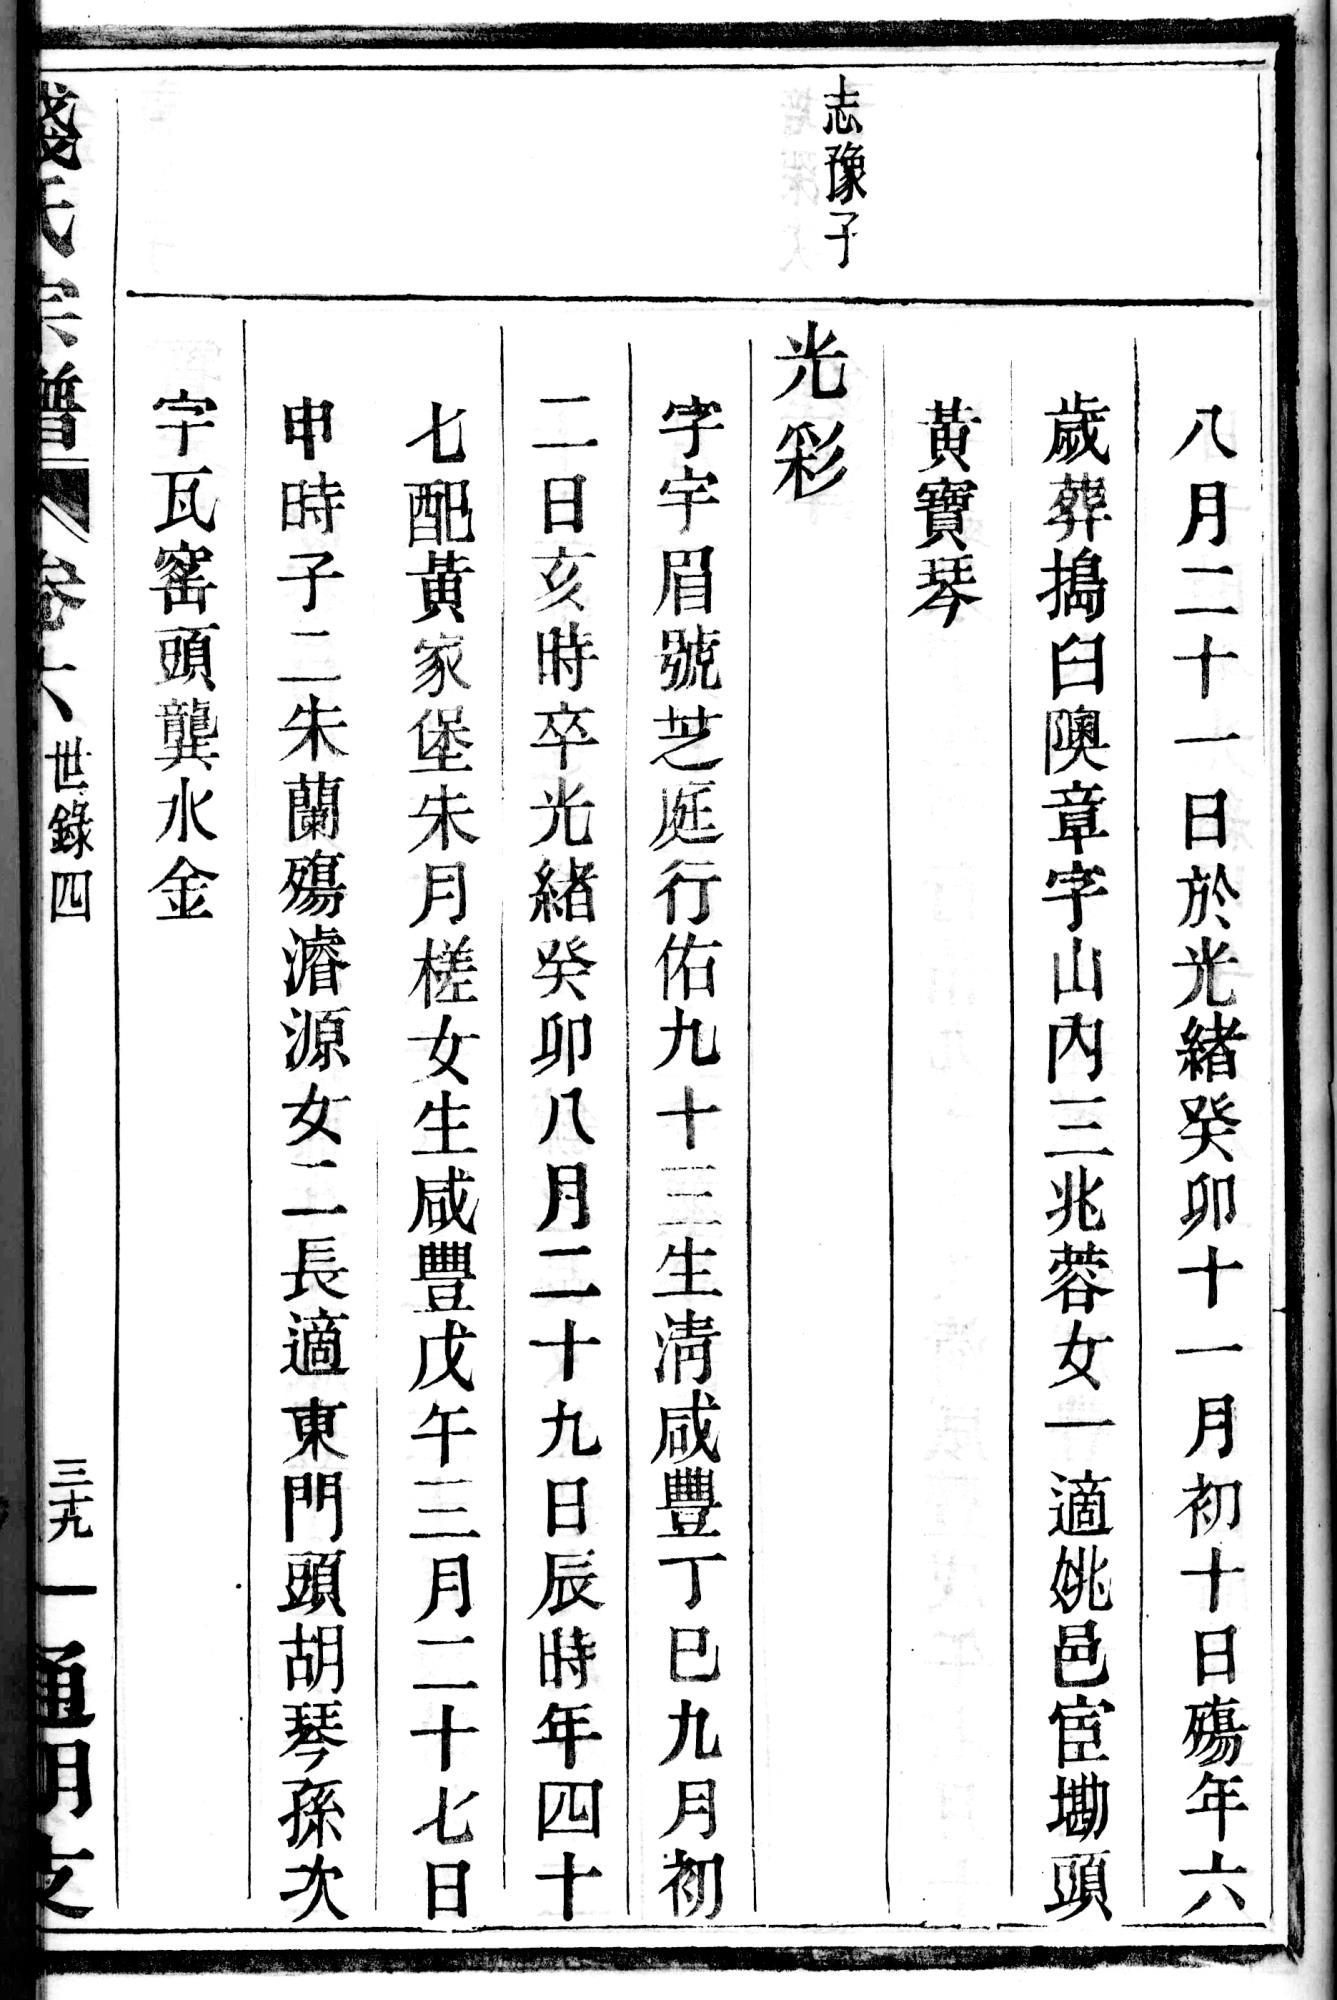 八月二十一日於光緒癸卯十一月初十日殤年六
歲葬搗臼隩章字山內三兆蓉女一適姚邑宦墈頭
黃寶琴
志豫子
光彩
字宇眉號芝庭行佑九十三生淸咸豐丁巳九月初
二日亥時卒光緒癸卯八月二十九日辰時年四十
七配黃家堡朱月槎女生咸豐戊午三月二十七日
申時子二朱蘭殤濬源女二長適東門頭胡琴孫次
字瓦窰頭龔水金
錢氏宗譜 卷十六 世錄四 三十九 通明支